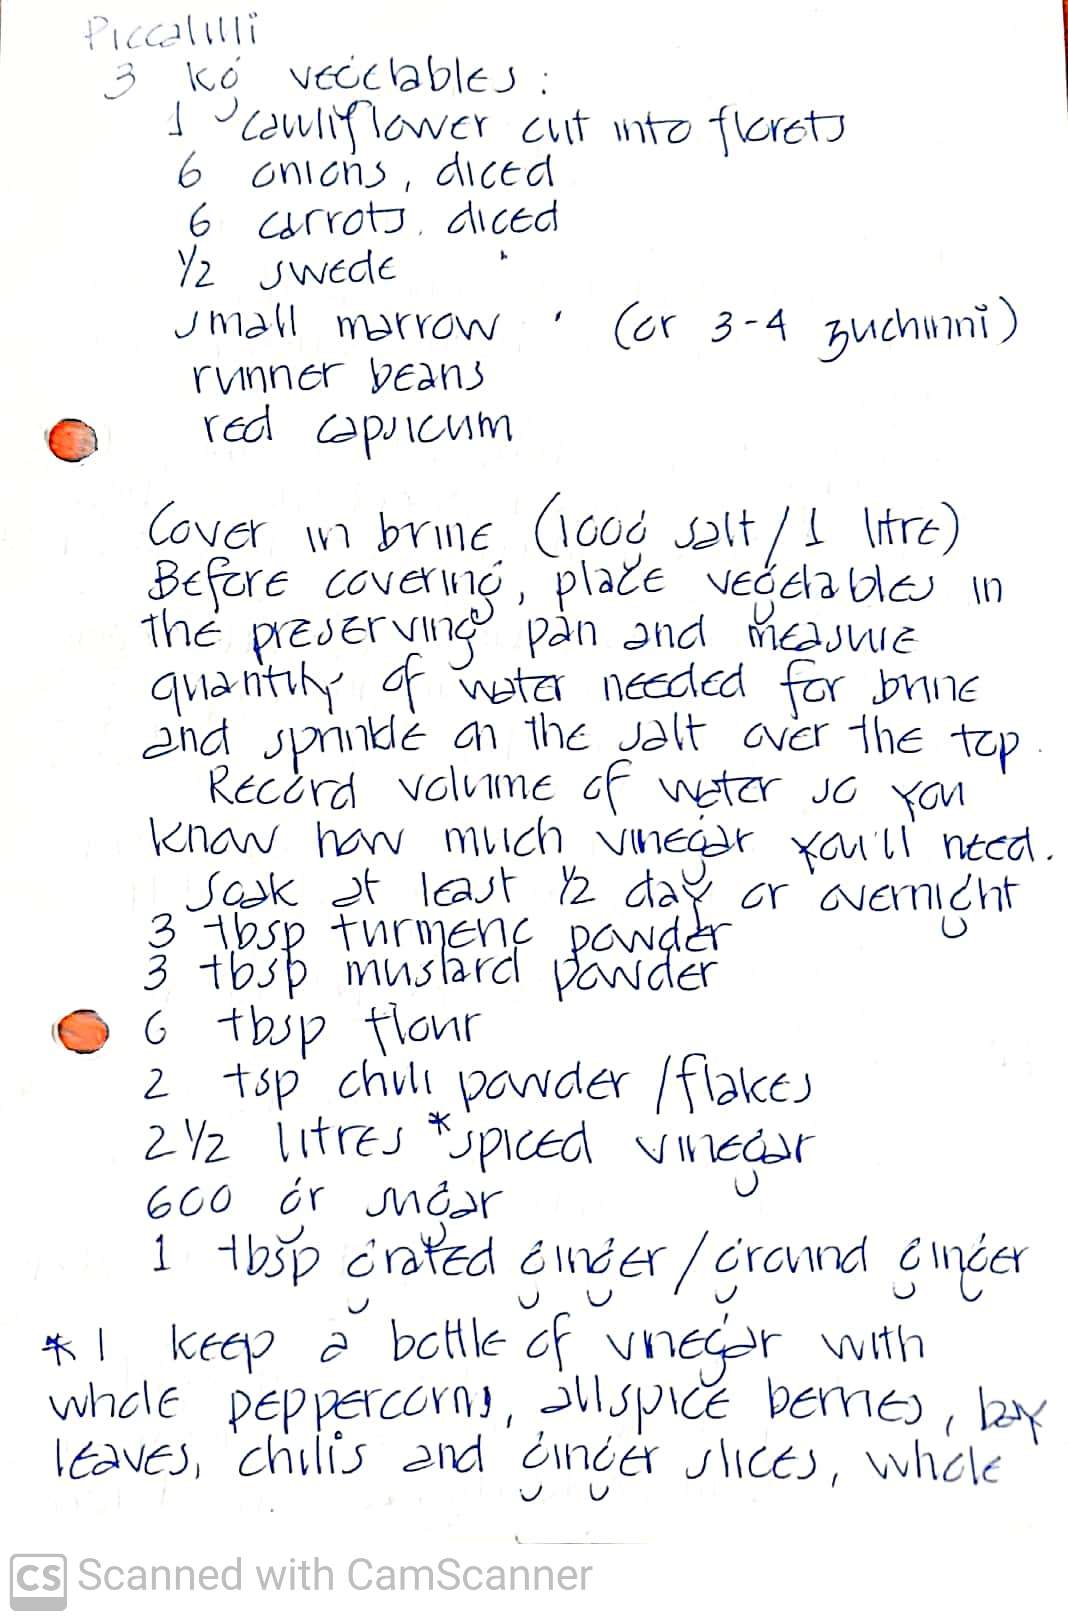 Piccalilli
3 kg vegetables :
1 cauliflower cut into florets
6 onions, diced
6 carrots, diced
1/2 swede
small marrow (or 3-4 zuchinni)
runner beans
red capsicum
Cover in brine (100g salt / 1 litre)
Before covering, place vegetables in
the preserving pan and measure
quantity of water needed for brine
and sprinkle on the salt over the top.
Record volume of water so you
know how much vinegar you'll need.
Soak at least 1/2 day or overnight
3 tbsp turmeric powder
3 tbsp mustard powder
6 tbsp flour
2 tsp chili powder / flakes
2 1/2 litres *spiced vinegar
600 gr sugar
1 tbsp grated ginger / ground ginger
* I keep a bottle of vinegar with
whole peppercorns, allspice berries, bay
leaves, chilis and ginger slices, whole
CS Scanned with CamScanner